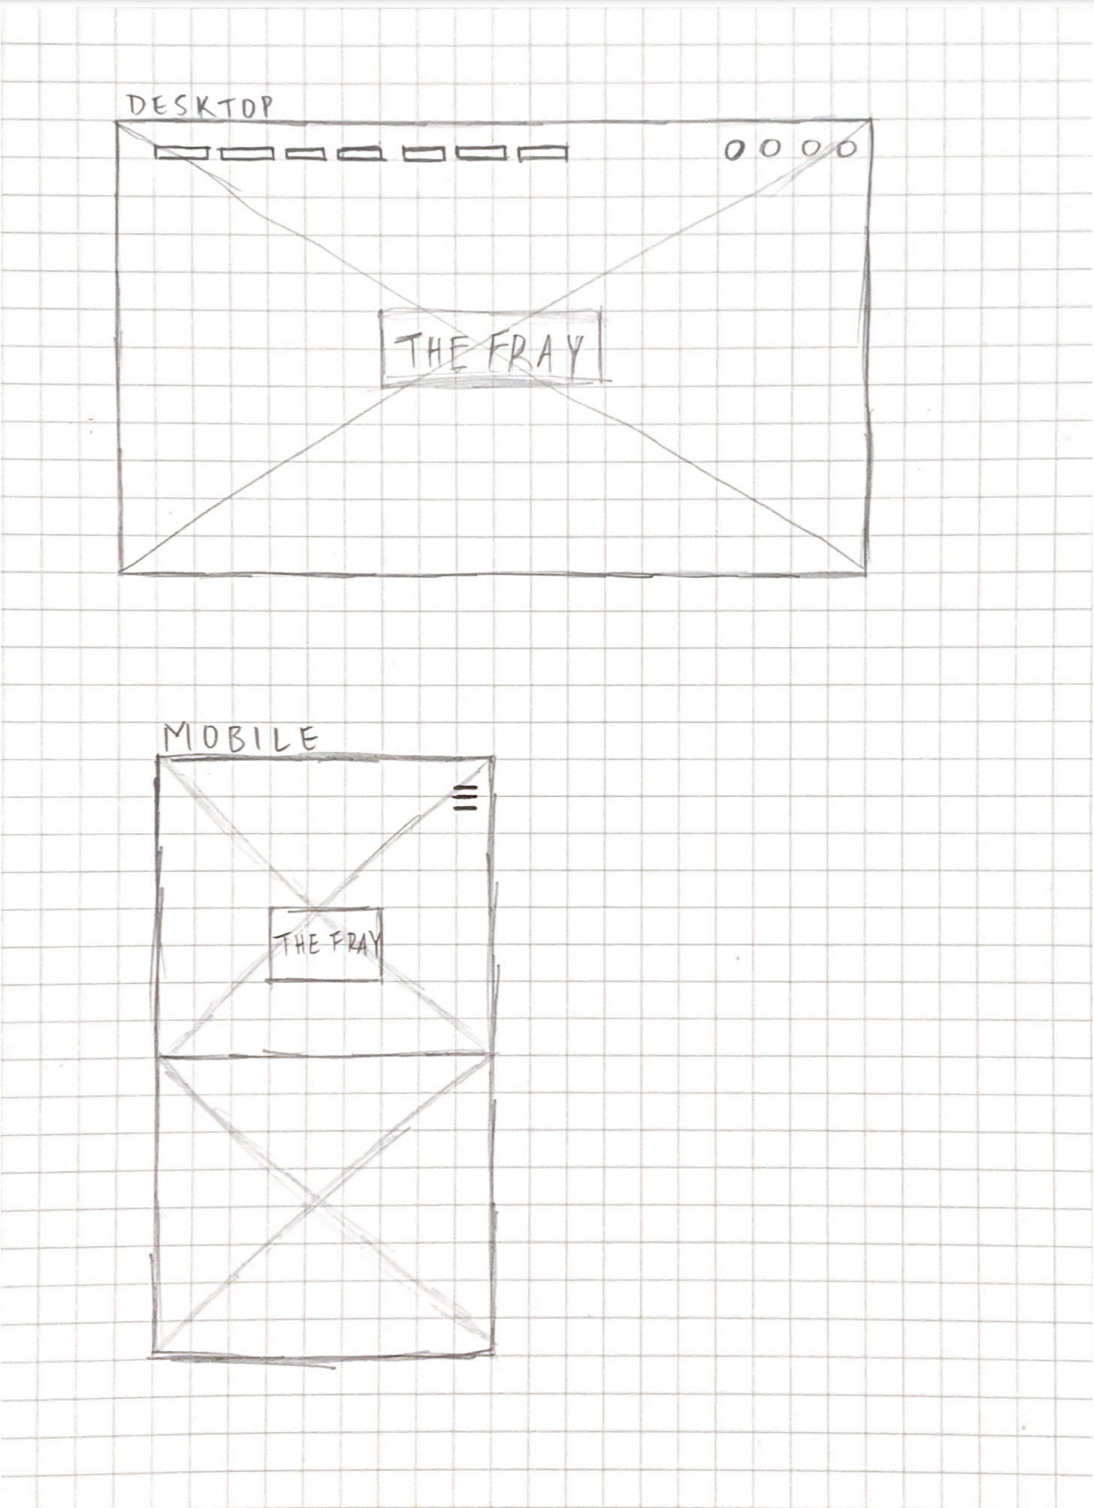 DESKTOP
THE FRAY
MOBILE
THE FRAY